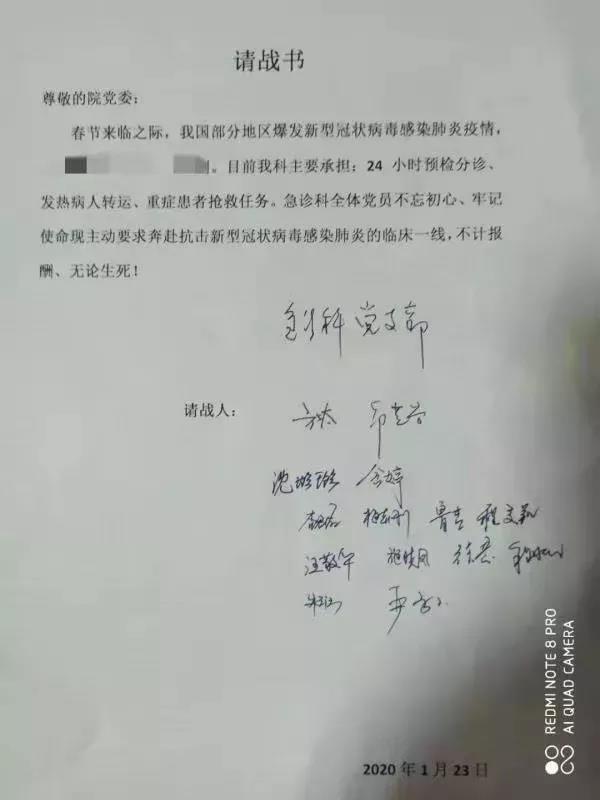 请战书
尊敬的院党委：
春节来临之际，我国部分地区爆发新型冠状病毒感染肺炎疫情，
。目前我科主要承担：24 小时预检分诊、
发热病人转运、重症患者抢救任务。急诊科全体党员不忘初心、牢记
使命现主动要求奔赴抗击新型冠状病毒感染肺炎的临床一线，不计报
酬、无论生死！
急诊科党支部
请战人：
余婷
鲁青 程文莉
汪敬午 施晓凤
2020 年 1 月 23 日
REDMI NOTE 8 PRO
AI QUAD CAMERA